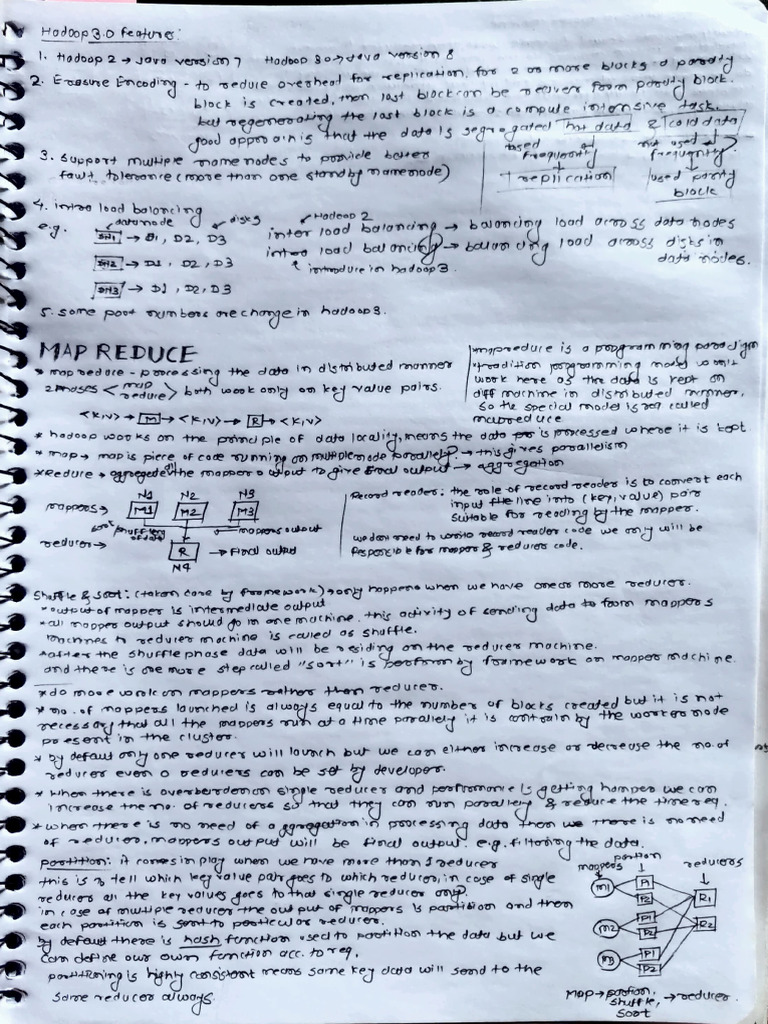 Hadoop 3.0 features:
1. Hadoop 2 → Java version 7 Hadoop 3.0 → Java version 8
2. Erasure Encoding - to reduce overhead for replication, for 2 or more blocks a parody
block is created, then last block can be recover from parody block.
but regenerating the last block is a compute intensive task.
good approain is that the data is segregated hot data & cold data
used frequently
not used frequently
replication
used parity block
3. support multiple namenodes to provide better
fault tolerance (more than one standby namenode)
4. intra load balancing
e.g.
datanode
disks
DN1 → D1, D2, D3
DN2 → D1, D2, D3
DN3 → D1, D2, D3
Hadoop 2
inter load balancing → balancing load across data nodes
intra load balancing → balancing load across disks in
data nodes.
introduce in hadoop 3.
5. some port numbers are change in hadoop 3.
MAP REDUCE
• map reduce - processing the data in distributed manner
2 phases < map reduce > both work only on key value pairs.
<K,V> → M → <K,V> → R → <K,V>
• mapreduce is a programming paradigm
• tradition programming model
work here as the data is kept on
diff machine in distributed manner,
so the special model is called
mapreduce
* hadoop works on the principle of data locality, means the data is processed where it is kept
* map → map is piece of code running on multiple node parallely → this gives parallelism
* Reduce → aggregate the mapper output to give final output → aggregation
N1 N2 N3
mappers → M1 M2 M3
sort
shuffling of data
mappers output
reducer → R → Final output
N4
Record reader: the role of record reader is to convert each
input file line into (key, value) pair
suitable for reading by the mapper.
we don need to write record reader code we only will be
responsible for mapper & reducer code.
Shuffle & sort: (taken care by framework) → only happens when we have one or more reducer.
* output of mapper is intermediate output
* all mapper output should go in one machine. this activity of sending data to from mappers
machines to reducer machine is called as shuffle.
* after the shuffle phase data will be residing on the reducer machine.
and there is one more step called "sort" is perform by framework on mapper machine.
* do more work on mappers rather than reducer.
* no. of mappers launched is always equal to the number of blocks created but it is not
necessary that all the mappers run at a time parallely it is contrain by the worker node
present in the cluster.
* by default only one reducer will launch but we can either increase or decrease the no. of
reducer even 0 reducers can be set by developer.
* when there is overburden on single reducer and performance is getting hamper we can
increase the no. of reducers so that they can run parallely & reduce the time req.
* when there is no need of aggregation in processing data then there is no need
of reducer, mappers output will be final output. e.g. filtering the data.
partition: it comes in play when we have more than 1 reducer
this is to tell which key value pair goes to which reducer, in case of single
reducer all the key values goes to that single reducer only.
in case of multiple reducer the output of mappers is partition and then
each partition is sent to particular reducer.
by default there is hash function used to partition the data but we
can define our own function acc. to req.
partitioning is highly consistent means same key data will send to the
same reducer always.
mappers
partion
reducers
M1 P1 P2
R1
M2 P1 P2
R2
M3 P1 P2
MAP → partion, shuffle, sort → reducer